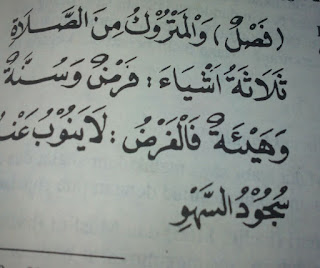 (فَصْلٌ) وَالْمَتْرُوْكُ مِنَ الصَّلَاةِ
ثَلَاثَةُ اَشْيَاءَ : فَرْضٌ وَسُنَّةٌ
وَهَيْئَةٌ فَالْفَرْضُ : لَا يَنُوْبُ عَنْهُ
سُجُوْدُ السَّهْوِ